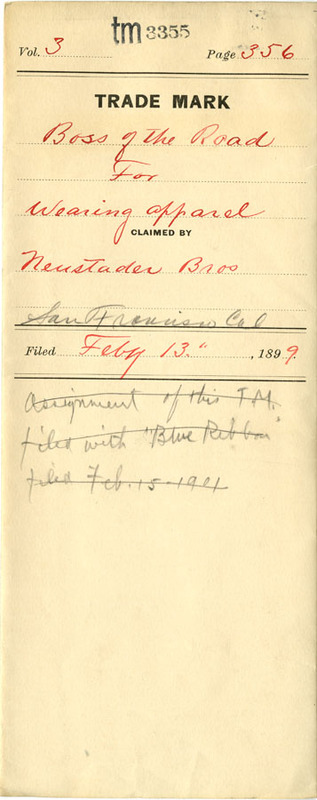 tm 3355
Vol. 3 Page 356
TRADE MARK
Boss of the Road
For
Wearing apparel
CLAIMED BY
Neustader Bros
San Francisco Cal
Filed Feby 13" , 1899.
Assignment of this T.M.
filed with "Blue Ribbon"
filed Feb. 15-1921